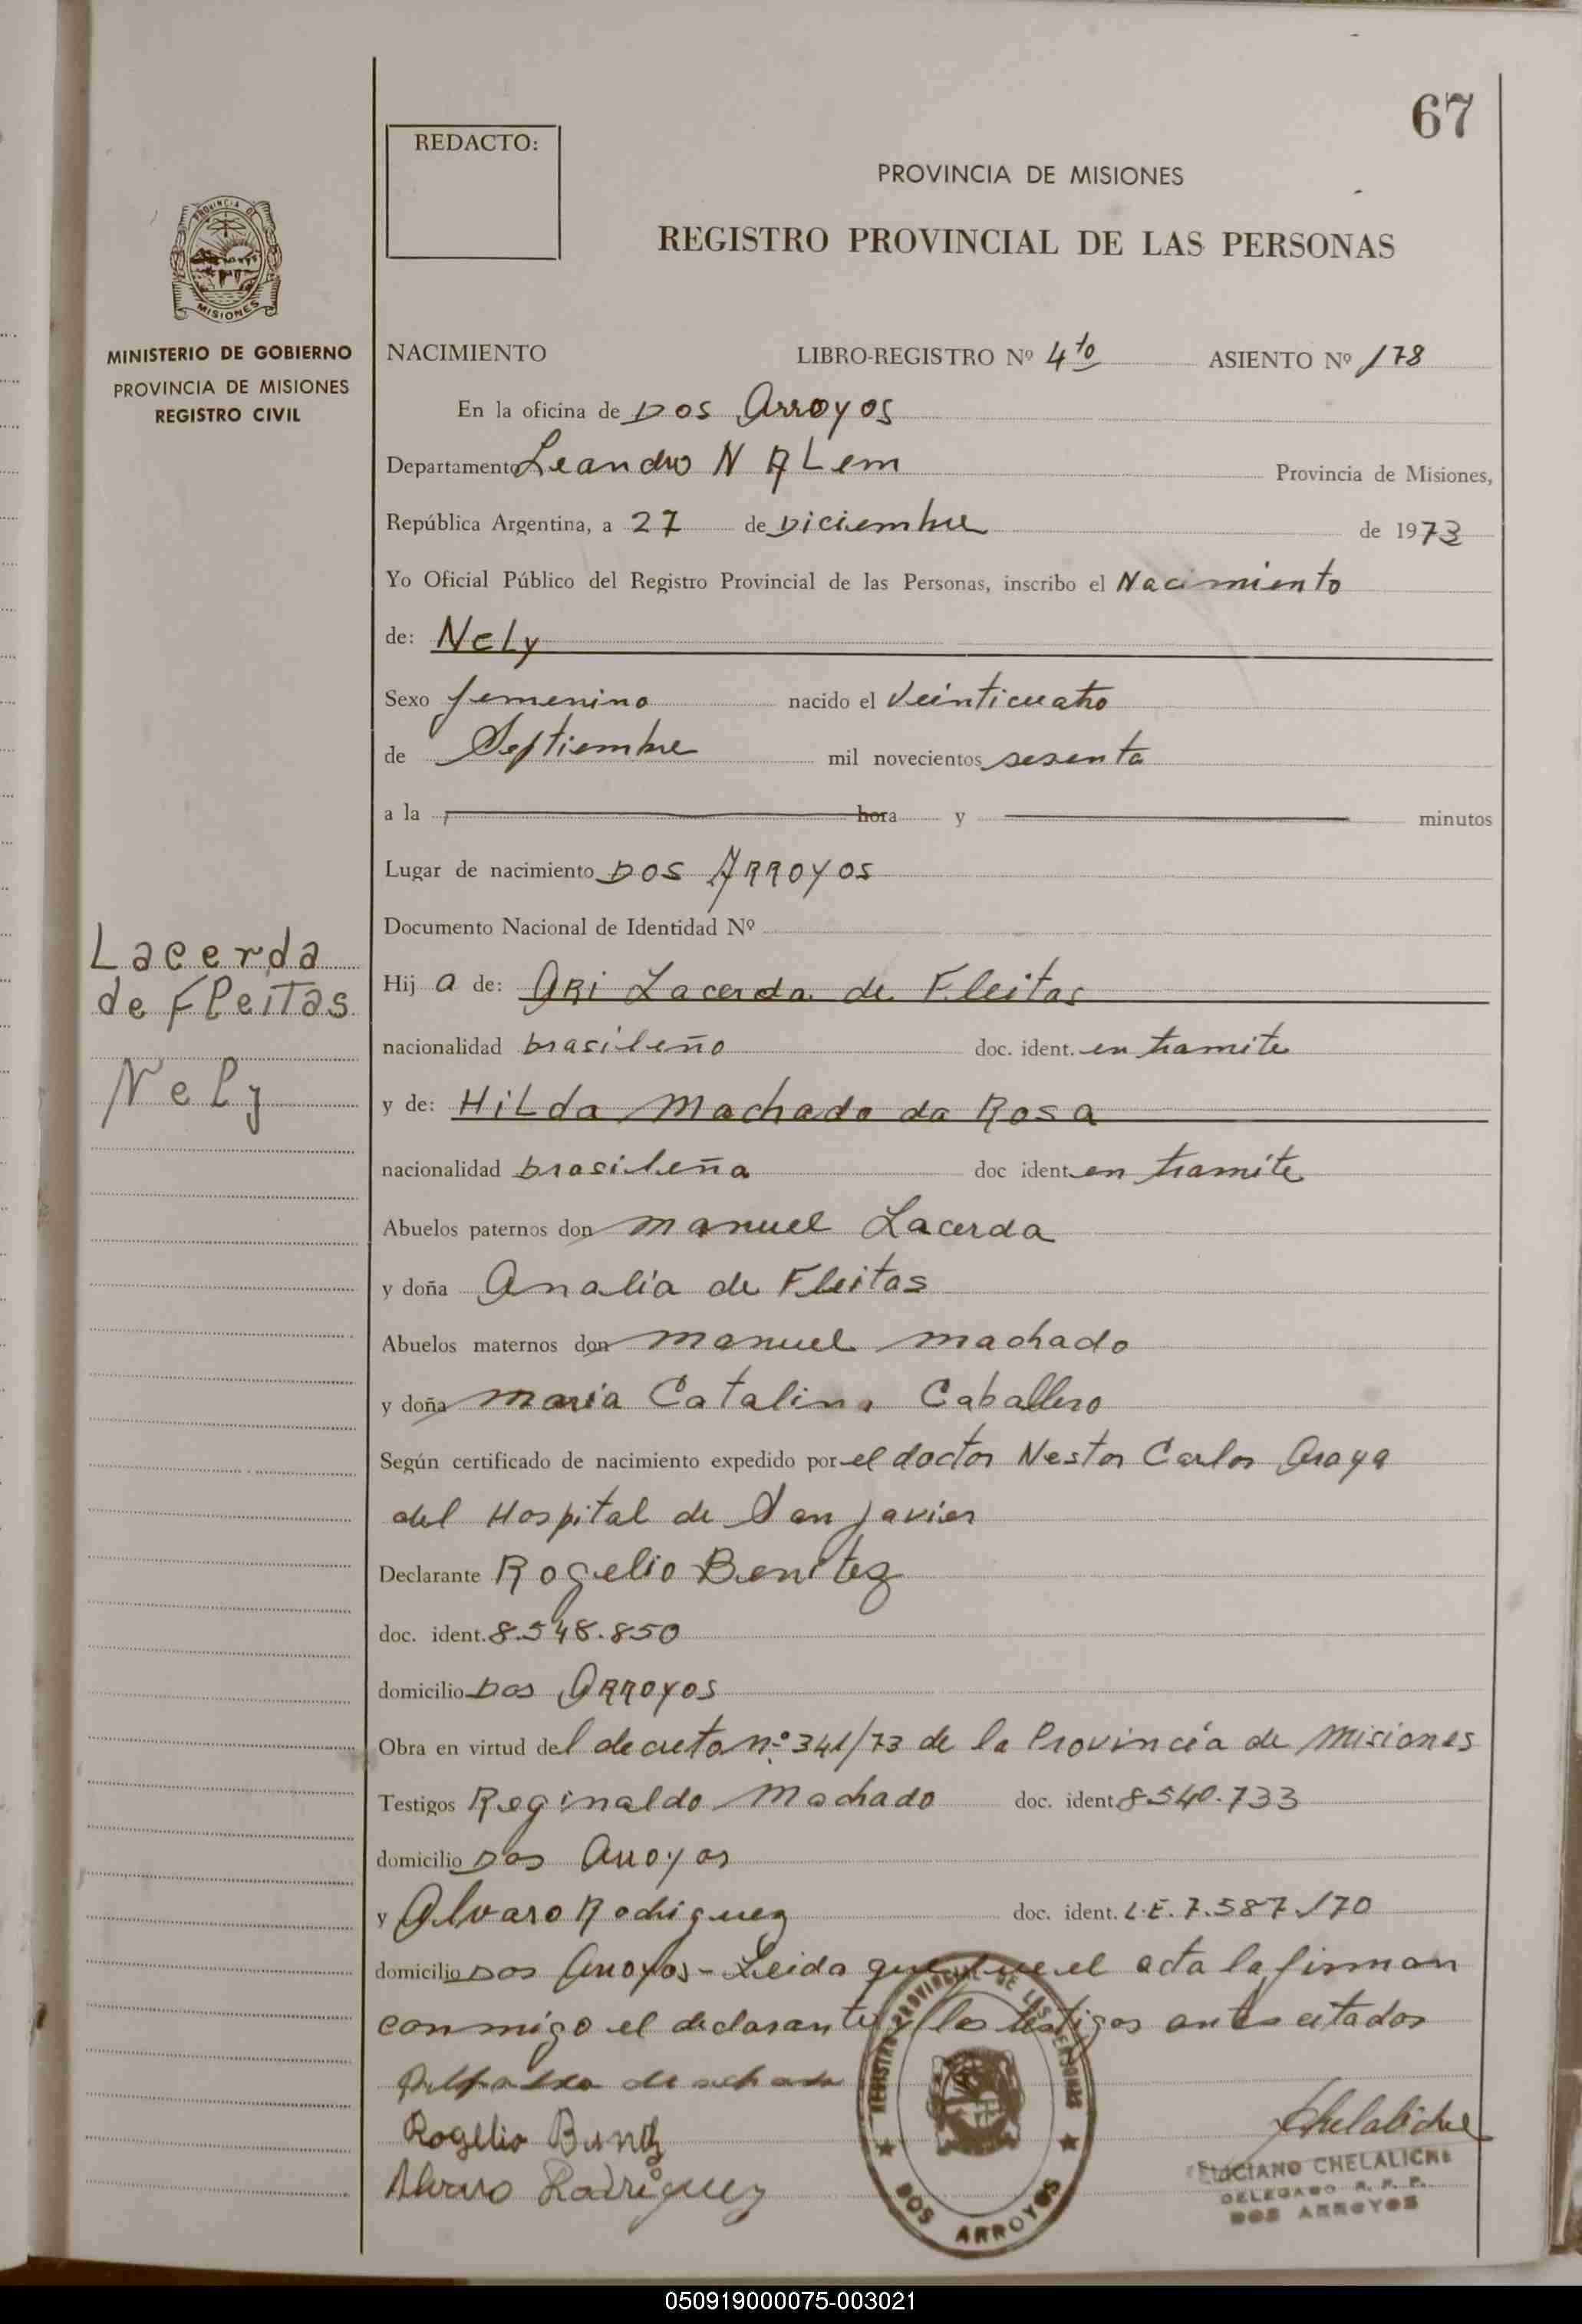 67
REDACTO:
PROVINCIA DE MISIONES
REGISTRO PROVINCIAL DE LAS PERSONAS
PROVINCIA DE
MISIONES
MINISTERIO DE GOBIERNO
PROVINCIA DE MISIONES
REGISTRO CIVIL
Lacerda
de Fleitas
Nely
NACIMIENTO LIBRO-REGISTRO Nº 4to ASIENTO Nº 178
En la oficina de Dos Arroyos
Departamento Leandro N ALem Provincia de Misiones,
República Argentina, a 27 de Diciembre de 1973
Yo Oficial Público del Registro Provincial de las Personas, inscribo el Nacimiento
de: Nely
Sexo femenino nacido el Veinticuatro
de Septiembre mil novecientos sesenta
a la hora y minutos
Lugar de nacimiento DOS ARROYOS
Documento Nacional de Identidad Nº
Hij a de: ARi Lacerda de Fleitas
nacionalidad brasileño doc. ident. en tramite
y de: HiLda Machado da Rosa
nacionalidad brasileña doc ident. en tramite
Abuelos paternos don Manuel Lacerda
y doña Analia de Fleitas
Abuelos maternos don Manuel Machado
y doña Maria Catalina Caballero
Según certificado de nacimiento expedido por el doctor Nestor Carlos Araya
del Hospital de San Javier
Declarante Rogelio Benitez
doc. ident. 8.548.850
domicilio Dos ARROYOS
Obra en virtud del decreto nº 341/73 de la Provincia de Misiones
Testigos Reginaldo Machado doc. ident. 8540.733
domicilio Dos Arroyos
y Alvaro Rodriguez doc. ident. L.E. 7.587.170
domicilio Dos Arroyos - Leida que fue el acta la firman
conmigo el declarante y los testigos antes citados
Rogelio Benitz
Alvaro Rodriguez
REGISTRO PROVINCIAL DE LAS PERSONAS
DOS ARROYOS
Chelaliche
FELICIANO CHELALICHE
DELEGADO R. P. P.
DOS ARROYOS
050919000075-003021